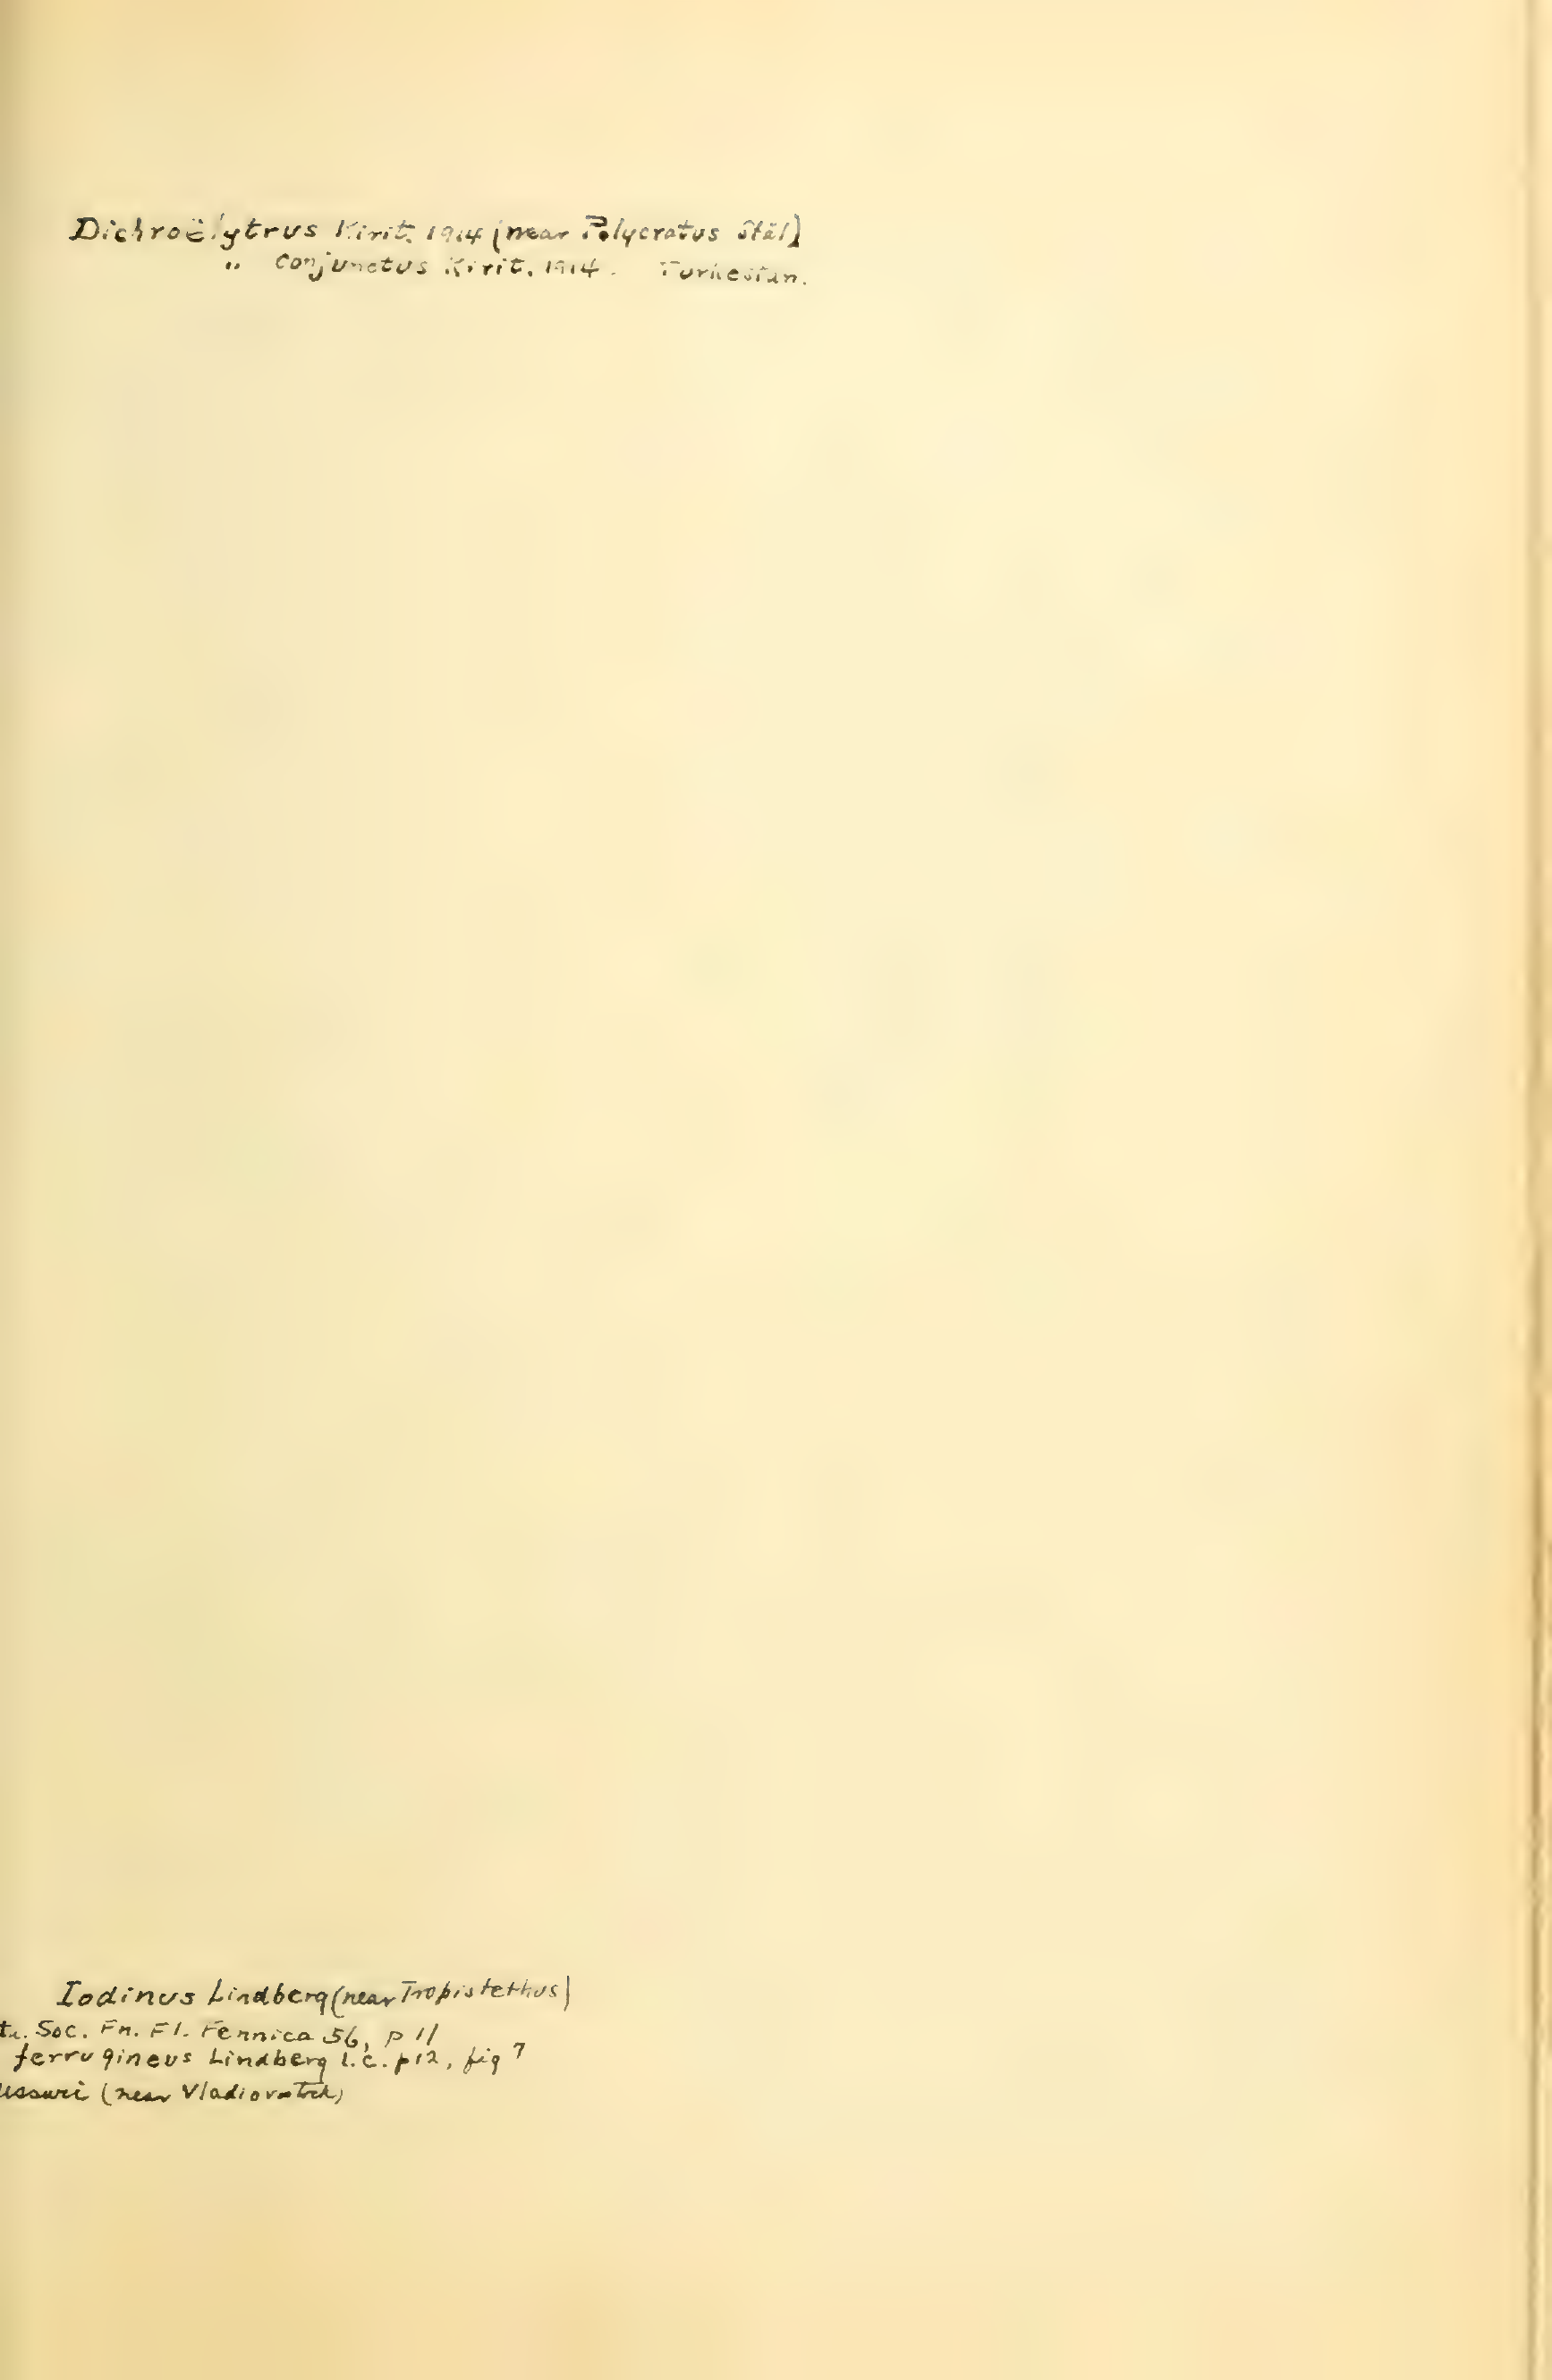 Dichroëlytrus Kirit. 1914 (near Polycratus Stål)
" conjunctus Kirit. 1914. Turkestan.
Iodinus Lindberg (near Tropistethus)
Soc. Fn. Fl. Fennica 56, p 11
ferrugineus Lindberg l.c. p 12, fig 7
Ussuri (near Vladiovstck)